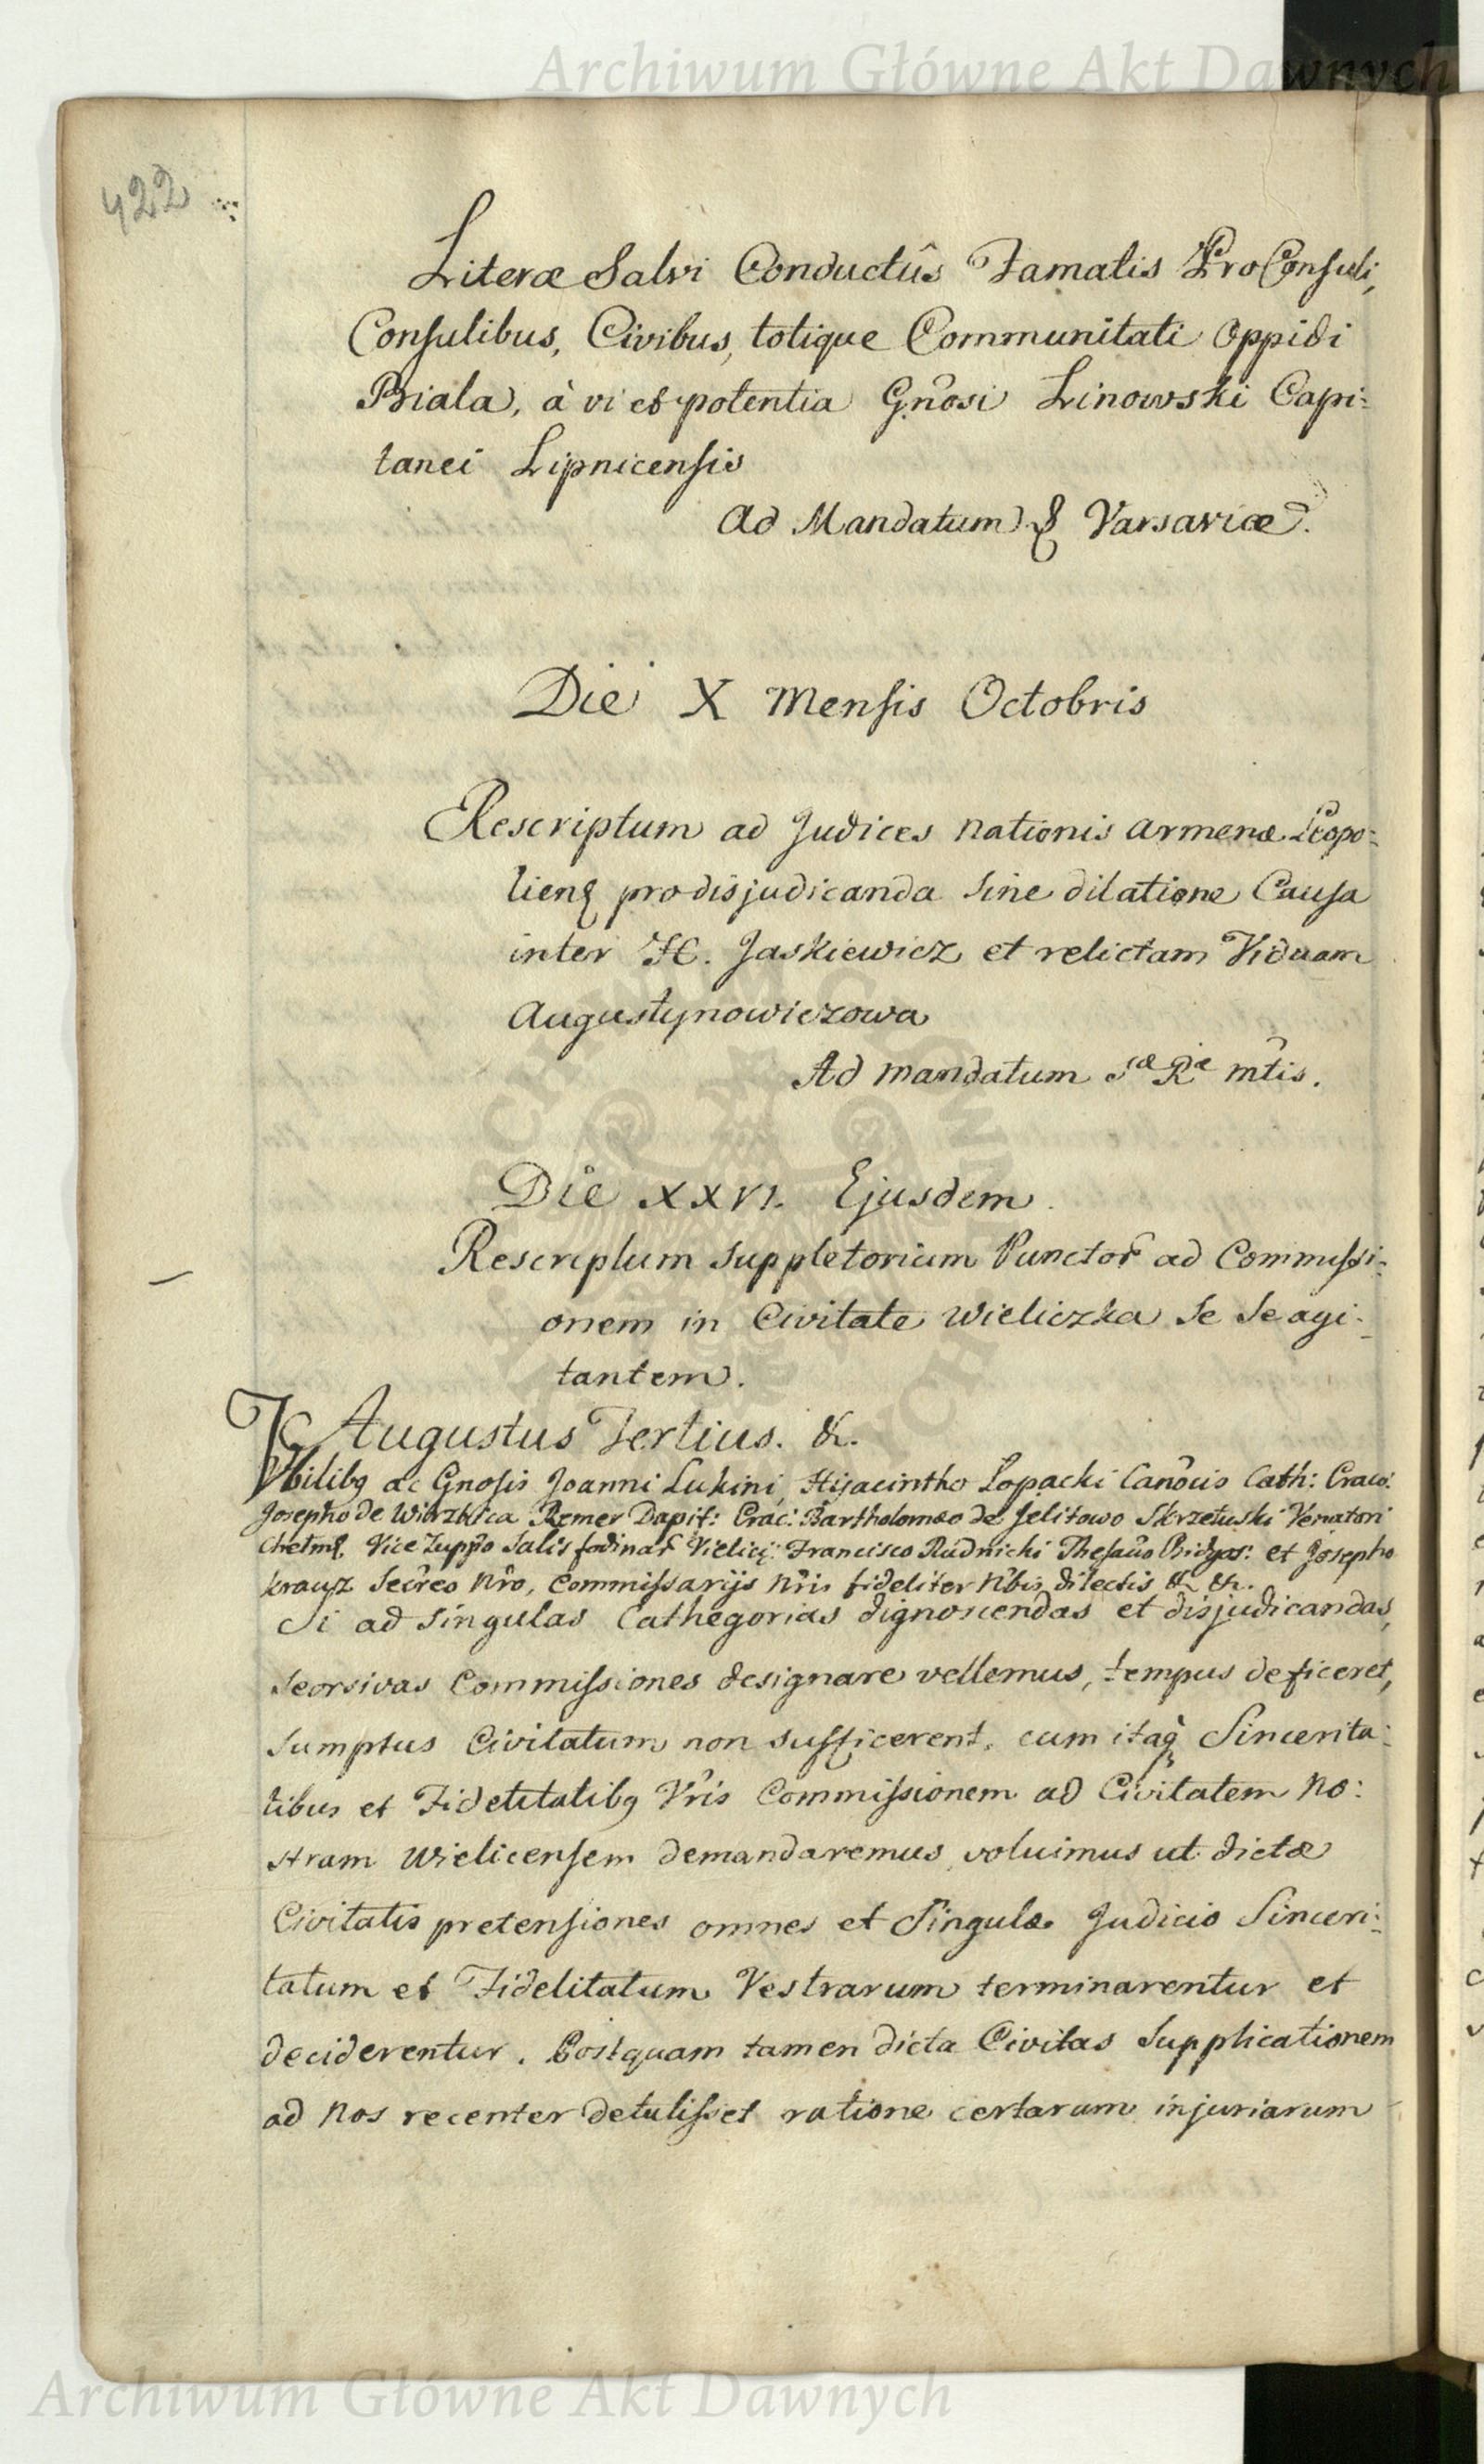 Archiwum Główne Akt Dawnych
422
Literæ Salvi Conductûs Famatis ProConsuli,
Consulibus, Civibus, totique Communitati Oppidi
Biala, à vi et potentia Gnôsi Linowski Capi:
tanei Lipnicensis
Ad Mandatum & Varsaviæ.
Die X Mensis Octobris
Rescriptum ad Judices nationis armenæ Leopo:
lienȝ pro disjudicanda sine dilatione Causa
inter H. Jaskiewicz et relictam Viduam
Augustynowiczowa
Ad mandatum Sæ Ræ mtis.
Die XXVI. Ejusdem
Rescriptum suppletorium Punctor ad Commissi:
onem in Civitate Wieliczka se se agi:
tantem.
Augustus Tertius. &.
Nbilibȝ ac Gnosis Joanni Lukini, Hyacintho Lopacki Canôcis Cath: Craco:
Josepho de Wiorzbica Remer Dapif: Crac: Bartholomæo de Selitowo Skrzetuski Venatori
Chelmȝ. Vice Zuppô Salis fodinar Vielicȝ: Francisco Rudnicki Thesaûo Bidgos: et Josepho
krauz Secreo Nrô, Commissarijs Nris fideliter Nbis dilectis & &.
Si ad singulas Cathegorias dignoscendas et disjudicandas,
seorsivas Commissiones designare vellemus, tempus deficeret,
sumptus Civitatum non sufficerent, cum itaq̃ Sincerita:
tibus et Fidelitatibȝ Vris Commissionem ad Civitatem No:
stram Wielicensem demandaremus voluimus ut dictæ
Civitatis pretensiones omnes et singulæ Judicio Sinceri:
tatum et Fidelitatum Vestrarum terminarentur et
deciderentur. Postquam tamen dicta Civitas Supplicationem
ad Nos recenter detulisset ratione certarum injuriarum
Archiwum Główne Akt Dawnych